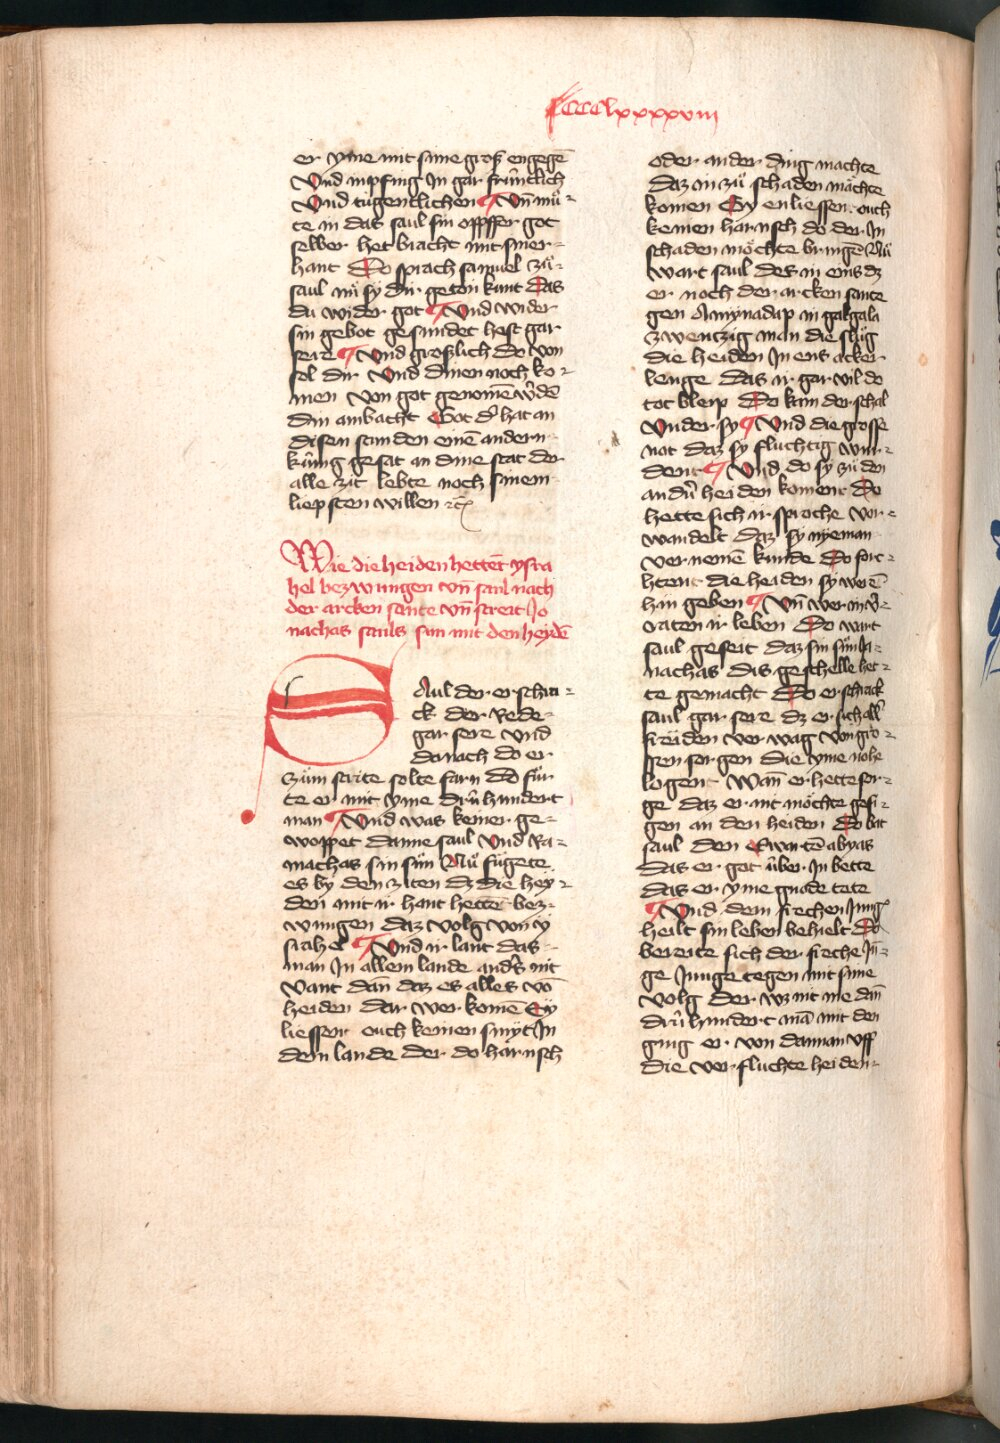 CCCClxxxxviii
er yme mit sime grosz engegē
Vnd inpfing Jn gar frúntlich
Vnd tugentlichen Vn̄ mů-
te in das saul sin opffer got
selber het bracht mit siner-
hant Do sprach samuel zů-
saul nů sy dir geton kunt Das
du wider got Vnd wider
sin gebot gesundet hest gar
sere Vnd groszlich Do von
sol dir Vnd dinen noch ko-
men von got genomē w'dē
din ambacht Got d' hat an
disen stunden einē andern
kúnig gesat an dine stat der
alle zit lebte noch sinem
liepsten willen ꝛc̄
Wie die heiden hettēt ysra
hel bezwungen vn̄ saul nach
der arcken sante vn̄ streit Jo
nachas sauls sun mit den heydē
SAul der erschra-
ck der Rede-
gar sere vnd
danach do er
zům strite solte farn do fůr
te er mit yme drú hundert
man Vnd was keiner ge-
woppet danne saul Vnd Ra-
machas sin sůn Nů fůgete
es by den ziten dz die hey-
den mit ir hant hettē bez-
wungen daz volg von y
srahel Vnd ir lant das-
man Jn allem lande and's nit
Vant dan̄ daz es alles vō
heiden dar wer komē Sy
liessent ouch keinen smyt Jn
dem lande der do harnsch
oder ander ding machte
daz in zů schaden möchte
komen Sy enliessen ouch
keinen harnsch do der Jn
schaden möchte bringē Nů
wart saul des in eins dz
er noch der arcken sante
gen Amynadap in galgala
zwentzig man die slůg
die heiden Jn ens acker
lenge das ir gar vil do
tot bleip Do kam der schal
vnder sy Vnd die grosse
not daz sy fluchtig wur-
dent Vnd do sy zů den
and'n heiden koment Do
hette sich ir sproche vor-
wandelt daz sy nyeman
vernemē kunde Do forc-
htent die heiden sy werē
hin geben Vn̄ wer in v'-
raten ir leben Do wart
saul geseit daz sin sůn Ja-
nachas dis geschelle het-
te gemacht Do erschrack
saul gar sere dz er sich all'
freiden verwag von gro-
szen sorgen die yme nohe
logent Wan̄ er hette sor-
ge daz er nit möchte gesi-
gen an den heiden Do bat
saul den Ewartē abyas
das er got úber Jn bette
das er yme gnode tete
Vnd dem frechen Jung'
heilt sin leben behielt Do
bereite sich der freche Ju-
ge Junge tegen mit sime
volg der wz nit me dan̄
drú hundert mā mit den
ging er von dannan vff
die verfluchte heiden-